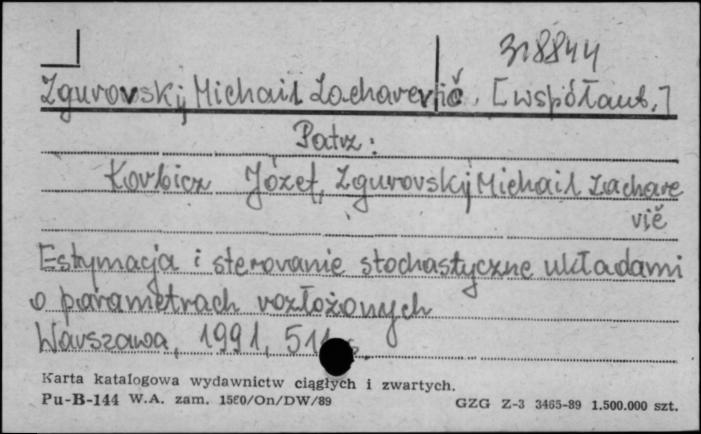 318844
Zgurovskij Michail Zacharevič. [współaut.]
Patrz:
Korbicz Józef, Zgurovskij Michail Zachare
vič
Estymacja i sterowanie stochastyczne układami
o parametrach rozłożonych
Warszawa, 1991, 511 s.
Karta katalogowa wydawnictw ciągłych i zwartych.
Pu-B-144 W.A. zam. 1580/On/DW/89 GZG Z-3 3465-89 1.500.000 szt.